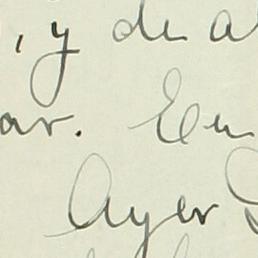 , y de a
ar. En
Ayer